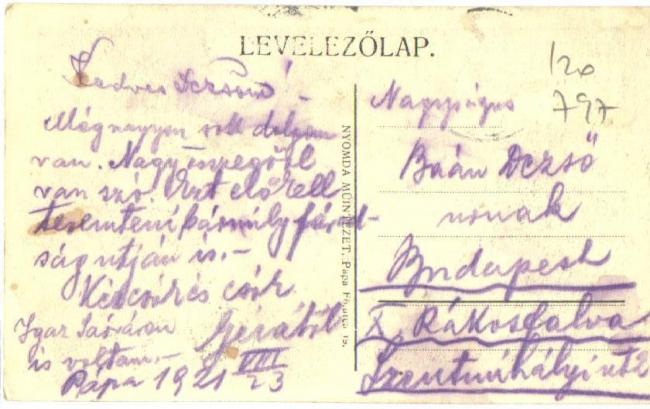 LEVELEZŐLAP.
Kedves Dezsőm! -
Még nagyon sok dolgom
van. Nagy összegről
van szó. Ezt elő kell
teremteni bármily fárad-
ság utján is. -
Kézcsók és csók
Gézától
Igar Sáráson
is voltam. -
Pápa 1921 VIII 23
NYOMDA MŰINTÉZET, Pápa
120
797
Nagyságos
Baán Dezső
urnak
Budapest
X. Rákosfalva
Szentmihályi ut 2